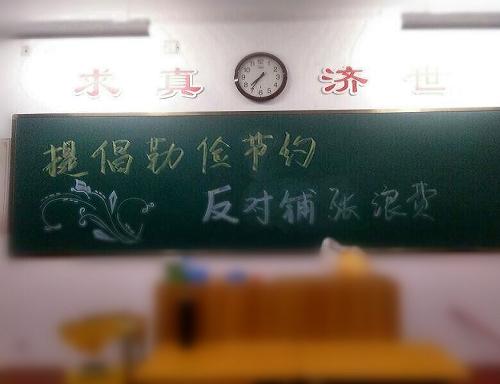 求真 济世
提倡勤俭节约
反对铺张浪费